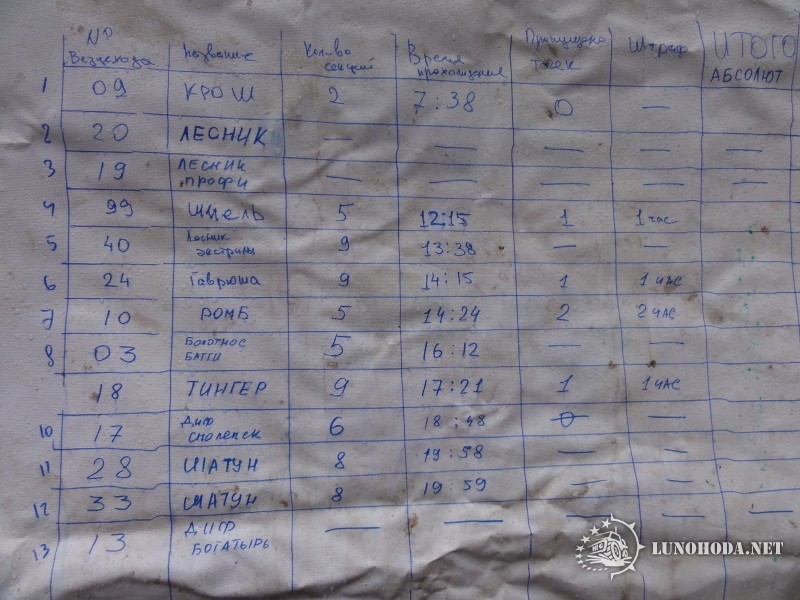 № Вездехода Название Кол-во секций Время прохождения Пропущено точек Штраф ИТОГО АБСОЛЮТ
1 09 КРОШ 2 7:38 0 —
2 20 ЛЕСНИК — — — — —
3 19 ЛЕСНИК ПРОФИ — — — — —
4 99 ШМЕЛЬ 5 12:15 1 1 час
5 40 Лесник экстрим 9 13:38 — —
6 24 Гаврюша 9 14:15 1 1 ЧАС
7 10 РОМБ 5 14:24 2 2 ЧАС
8 03 БОЛОТНОЕ БАГГИ 5 16:12 — —
18 ТИНГЕР 9 17:21 1 1 ЧАС
10 17 ДИФ СМОЛЕНСК 6 18:48 0 —
11 28 ШАТУН 8 19:58 — —
12 33 ШАТУН 8 19:59 — — —
13 13 ДИФ БОГАТЫРЬ — — — —
LUNOHODA.NET